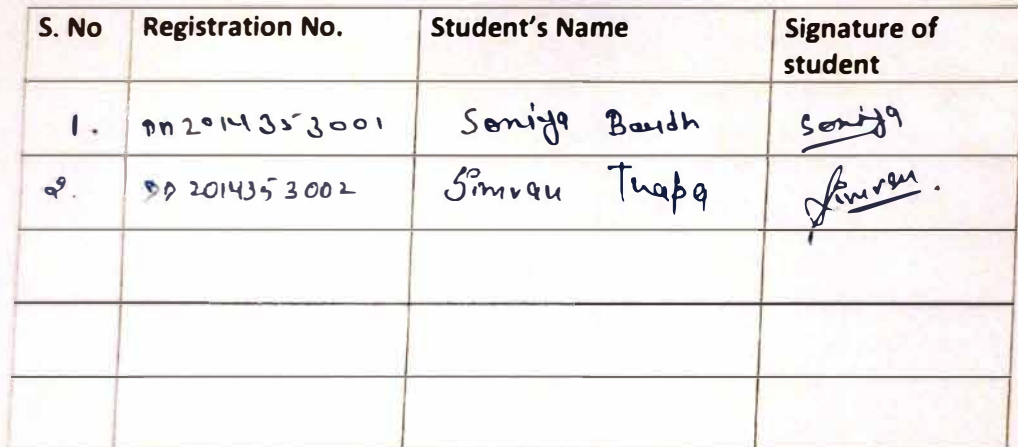 S. No Registration No. Student's Name Signature of
student
1. 2014353001 Soniya Soniya
2. 2014353002 Simran Thapa Simran.